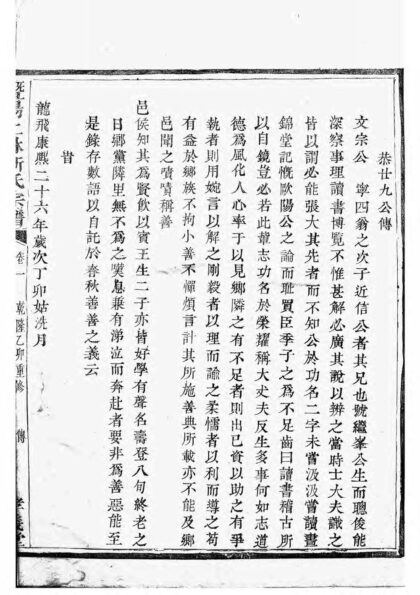 恭廿九公傳
文宗公 寧四翁之次子近信公者其兄也號繼峯公生而聰俊能
深察事理讀書博覽不惟甚解必廣其說以辨之當時士大夫識之
皆以謂必能張大其先者而不知公於功名二字未嘗汲汲嘗讀晝
錦堂記慨歐陽公之論而耻買臣季子之為不足齒曰讀書稽古所
以自鏡豈必若此輩志功名於榮耀稱大丈夫反生多事何如志道
德為風化人心率于以見鄉隣之有不足者則出己資以助之有爭
執者則用婉言以解之剛毅者以理而諭之柔懦者以利而導之苟
有益於鄉族不拘小善不憚煩言計其所施善典所載亦不能及鄉
邑聞之嘖嘖稱善
邑侯知其為賢飲以賓王生二子亦皆好學有聲名壽登八旬終老之
日鄉黨隣里無不為之奠息泉有涕泣而奔赴者要非為善惡能至
是錄存數語以自託於春秋善善之義云
昔
龍飛康熙二十六年歲次丁卯姑洗月
暨陽 林 氏宗譜 卷一 乾隆乙卯重修 傳 孝義堂